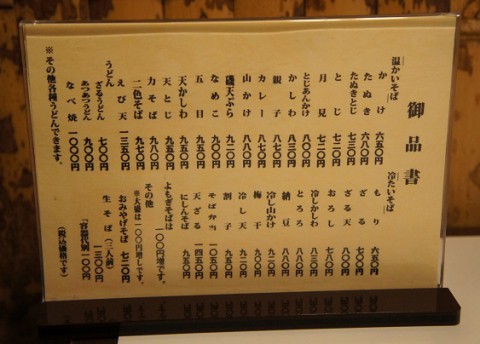 御品書
温かいそば
かけ 六五〇円
たぬき 六八〇円
たぬきとじ 七三〇円
とじ 七二〇円
月見 七二〇円
とじあんかけ
かしわ 八三〇円
親子 八七〇円
カレー 八七〇円
山かけ 八八〇円
磯天ぷら 九二〇円
なめこ 九〇〇円
五目
天かしわ
天とじ
力そば
二色そば 九七〇円
えび天 一三五〇円
うどん
ざるうどん 七〇〇円
あつあつうどん 九〇〇円
なべ焼 一〇〇〇円
※その他各種うどんできます。
冷たいそば
もり 六五〇円
ざる 七〇〇円
ざる天
おろし
冷しかしわ 八三〇円
とろろ
納豆
梅干 九〇〇円
冷し山かけ
冷し天 九二〇円
割子 九五〇円
そば弁当 一〇五〇円
天ざる
にしんそば 九五〇円
よもぎそばは
一〇〇円増です。
その他
※大盛は一〇〇円増しです。
おみやげそば 七二〇円
生そば(三人前) 一三〇〇円
「容器代別一〇〇円」
(税込価格です)